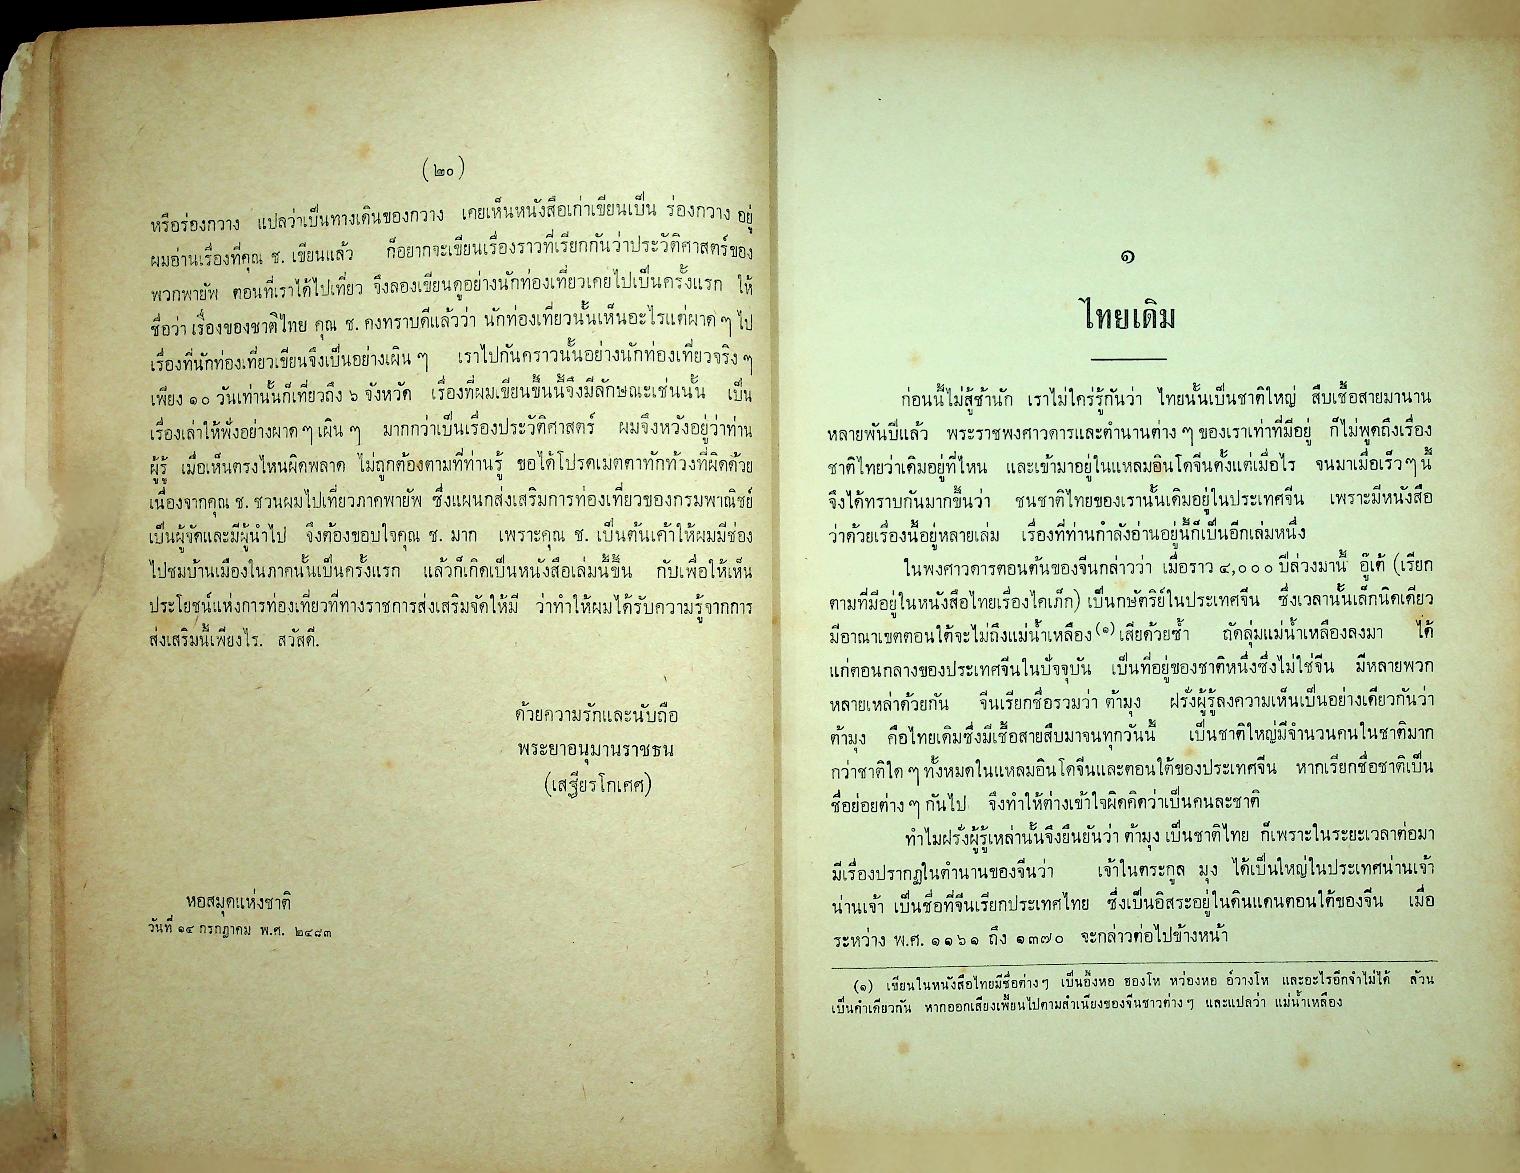 (๒๐)
หรือร่องกวาง แปลว่าเป็นทางเดินของกวาง เคยเห็นหนังสือเก่าเขียนเป็น ร่องกวาง อยู่
ผมอ่านเรื่องที่คุณ ช. เขียนแล้ว ก็อยากจะเขียนเรื่องราวที่เรียกกันว่าประวัติศาสตร์ของ
พวกพายัพ ตอนที่เราได้ไปเที่ยว จึงลองเขียนดูอย่างนักท่องเที่ยวเคยไปเป็นครั้งแรก ให้
ชื่อว่า เรื่องของชาติไทย คุณ ช. คงทราบดีแล้วว่า นักท่องเที่ยวนั้นเห็นอะไรแต่ผาด ๆ ไป
เรื่องที่นักท่องเที่ยวเขียนจึงเป็นอย่างเผิน ๆ เราไปกันคราวนั้นอย่างนักท่องเที่ยวจริง ๆ
เพียง ๑๐ วันเท่านั้นก็เที่ยวถึง ๖ จังหวัด เรื่องที่ผมเขียนขึ้นนี้จึงมีลักษณะเช่นนั้น เป็น
เรื่องเล่าให้ฟังอย่างผาด ๆ เผิน ๆ มากกว่าเป็นเรื่องประวัติศาสตร์ ผมจึงหวังอยู่ว่าท่าน
ผู้รู้ เมื่อเห็นตรงไหนผิดพลาด ไม่ถูกต้องตามที่ท่านรู้ ขอได้โปรดเมตตาทักท้วงที่ผิดด้วย
เนื่องจากคุณ ช. ชวนผมไปเที่ยวภาคพายัพ ซึ่งแผนกส่งเสริมการท่องเที่ยวของกรมพาณิชย์
เป็นผู้จัดและมีผู้นำไป จึงต้องขอบใจคุณ ช. มาก เพราะคุณ ช. เป็นต้นเค้าให้ผมมีช่อง
ไปชมบ้านเมืองในภาคนั้นเป็นครั้งแรก แล้วก็เกิดเป็นหนังสือเล่มนี้ขึ้น กับเพื่อให้เห็น
ประโยชน์แห่งการท่องเที่ยวที่ทางราชการส่งเสริมจัดให้มี ว่าทำให้ผมได้รับความรู้จากการ
ส่งเสริมนี้เพียงไร. สวัสดี.
ด้วยความรักและนับถือ
พระยาอนุมานราชธน
(เสฐียรโกเศศ)
หอสมุดแห่งชาติ
วันที่ ๑๔ กรกฎาคม พ.ศ. ๒๔๘๓
๑
ไทยเดิม
ก่อนนี้ไม่สู้ช้านัก เราไม่ใคร่รู้กันว่า ไทยนั้นเป็นชาติใหญ่ สืบเชื้อสายมานาน
หลายพันปีแล้ว พระราชพงศาวดารและตำนานต่าง ๆ ของเราเท่าที่มีอยู่ ก็ไม่พูดถึงเรื่อง
ชาติไทยว่าเดิมอยู่ที่ไหน และเข้ามาอยู่ในแหลมอินโดจีนตั้งแต่เมื่อไร จนมาเมื่อเร็ว ๆ นี้
จึงได้ทราบกันมากขึ้นว่า ชนชาติไทยของเรานั้นเดิมอยู่ในประเทศจีน เพราะมีหนังสือ
ว่าด้วยเรื่องนี้อยู่หลายเล่ม เรื่องที่ท่านกำลังอ่านอยู่นี้ก็เป็นอีกเล่มหนึ่ง
ในพงศาวดารตอนต้นของจีนกล่าวว่า เมื่อราว ๔,๐๐๐ ปีล่วงมานี้ อู๊เต้ (เรียก
ตามที่มีอยู่ในหนังสือไทยเรื่องไคเภ็ก) เป็นกษัตริย์ในประเทศจีน ซึ่งเวลานั้นเล็กนิดเดียว
มีอาณาเขตตอนใต้จะไม่ถึงแม่น้ำเหลือง(๑) เสียด้วยซ้ำ ถัดลุ่มแม่น้ำเหลืองลงมา ได้
แก่ตอนกลางของประเทศจีนในปัจจุบัน เป็นที่อยู่ของชาติหนึ่งซึ่งไม่ใช่จีน มีหลายพวก
หลายเหล่าด้วยกัน จีนเรียกชื่อรวมว่า ต้ามุง ฝรั่งผู้รู้ลงความเห็นเป็นอย่างเดียวกันว่า
ต้ามุง คือไทยเดิมซึ่งมีเชื้อสายสืบมาจนทุกวันนี้ เป็นชาติใหญ่มีจำนวนคนในชาติมาก
กว่าชาติใด ๆ ทั้งหมดในแหลมอินโดจีนและตอนใต้ของประเทศจีน หากเรียกชื่อชาติเป็น
ชื่อย่อยต่าง ๆ กันไป จึงทำให้ต่างเข้าใจผิดคิดว่าเป็นคนละชาติ
ทำไมฝรั่งผู้รู้เหล่านั้นจึงยืนยันว่า ต้ามุง เป็นชาติไทย ก็เพราะในระยะเวลาต่อมา
มีเรื่องปรากฏในตำนานของจีนว่า เจ้าในตระกูล มุง ได้เป็นใหญ่ในประเทศน่านเจ้า
น่านเจ้า เป็นชื่อที่จีนเรียกประเทศไทย ซึ่งเป็นอิสระอยู่ในดินแดนตอนใต้ของจีน เมื่อ
ระหว่าง พ.ศ. ๑๑๖๑ ถึง ๑๓๗๐ จะกล่าวต่อไปข้างหน้า
(๑) เขียนในหนังสือไทยมีชื่อต่าง ๆ เป็นอึ้งหอ ฮองโห หว่องหอ อ๋วางโห และอะไรอีกจำไม่ได้ ล้วน
เป็นคำเดียวกัน หากออกเสียงเพี้ยนไปตามสำเนียงของจีนชาวต่าง ๆ และแปลว่า แม่น้ำเหลือง